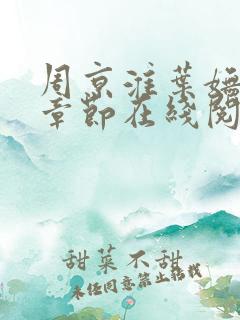 周京淮葉嫵
章節在綫閱
甜菜不甜
未经同意禁止转载